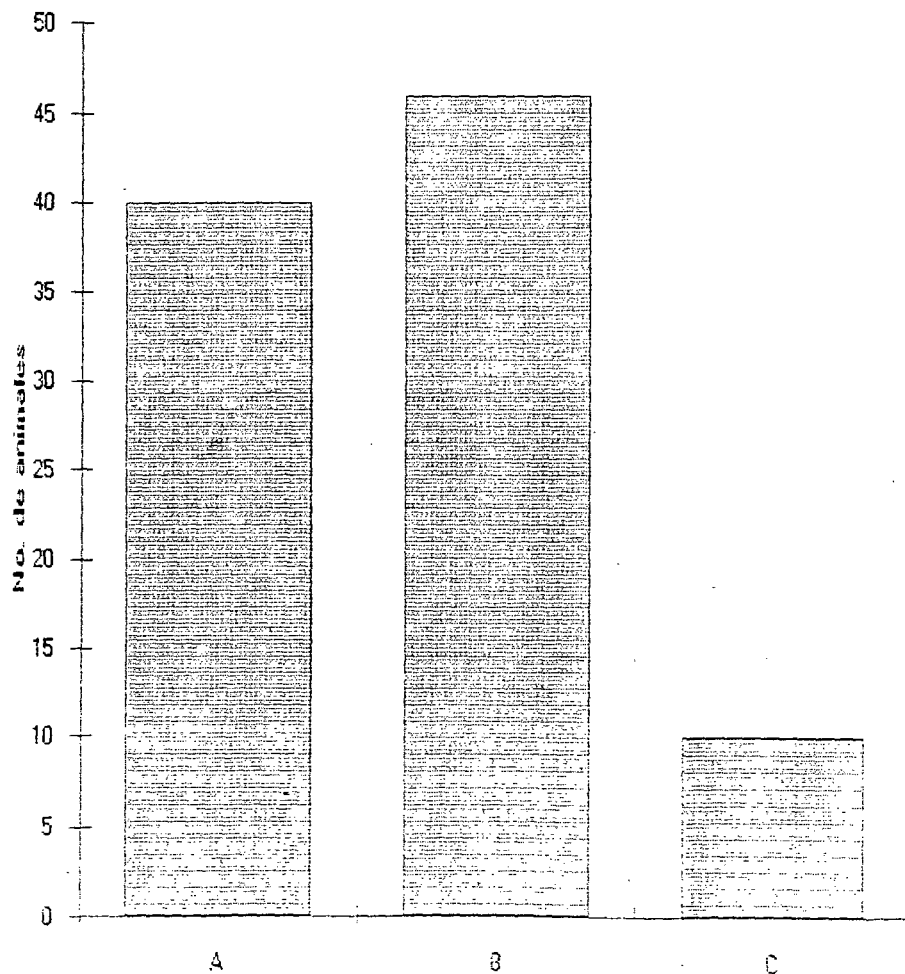 50
45
40
35
30
25
20
15
10
5
0
No. de animales
A
B
C